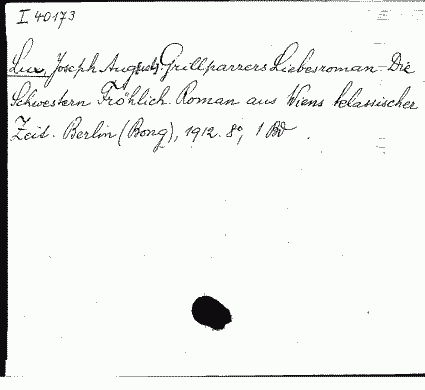 I 40173
Lux, Joseph August: Grillparzers Liebesroman - Die
Schwestern Fröhlich. Roman aus Wiens klassischer
Zeit. Berlin (Bong), 1912. 8°, 1 Bd